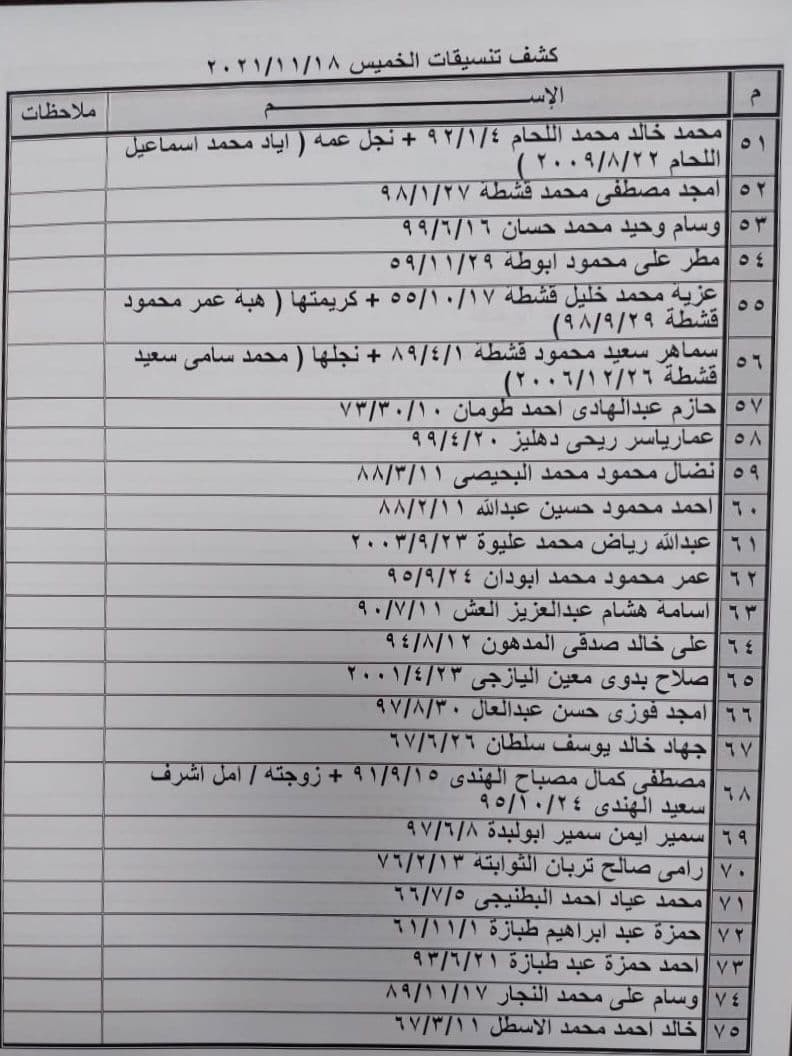 كشف تنسيقات الخميس ٢٠٢١/١١/١٨
م الإســـــــم ملاحظات
٥١ محمد خالد محمد اللحام ٩٢/١/٤ + نجل عمه ( اياد محمد اسماعيل
اللحام ٢٠٠٩/٨/٢٢ )
٥٢ امجد مصطفى محمد قشطة ٩٨/١/٢٧
٥٣ وسام وحيد محمد حسان ٩٩/٦/١٦
٥٤ مطر على محمود ابوطة ٥٩/١١/٢٩
٥٥ عزية محمد خليل قشطة ٥٥/١٠/١٧ + كريمتها ( هبة عمر محمود
قشطة ٩٨/٩/٢٩)
٥٦ سماهر سعيد محمود قشطة ٨٩/٤/١ + نجلها ( محمد سامى سعيد
قشطة ٢٠٠٦/١٢/٢٦)
٥٧ حازم عبدالهادى احمد طومان ٧٣/٣٠/١٠
٥٨ عمارياسر ريحى دهليز ٩٩/٤/٢٠
٥٩ نضال محمود محمد البحيصى ٨٨/٣/١١
٦٠ احمد محمود حسين عبدالله ٨٨/٢/١١
٦١ عبدالله رياض محمد عليوة ٢٠٠٣/٩/٢٣
٦٢ عمر محمود محمد ابودان ٩٥/٩/٢٤
٦٣ اسامة هشام عبدالعزيز العش ٩٠/٧/١١
٦٤ على خالد صدقى المدهون ٩٤/٨/١٢
٦٥ صلاح بدوى معين اليازجى ٢٠٠١/٤/٢٣
٦٦ امجد فوزى حسن عبدالعال ٩٧/٨/٣٠
٦٧ جهاد خالد يوسف سلطان ٦٧/٦/٢٦
٦٨ مصطفى كمال مصباح الهندى ٩١/٩/١٥ + زوجته / امل اشرف
سعيد الهندى ٩٥/١٠/٢٤
٦٩ سمير ايمن سمير ابولبدة ٩٧/٦/٨
٧٠ رامى صالح تربان الثوابتة ٧٦/٢/١٣
٧١ محمد عياد احمد البطنيجى ٦٦/٧/٥
٧٢ حمزة عبد ابراهيم طبازة ٦١/١١/١
٧٣ احمد حمزة عبد طبازة ٩٣/٦/٢١
٧٤ وسام على محمد النجار ٨٩/١١/١٧
٧٥ خالد احمد محمد الاسطل ٦٧/٣/١١